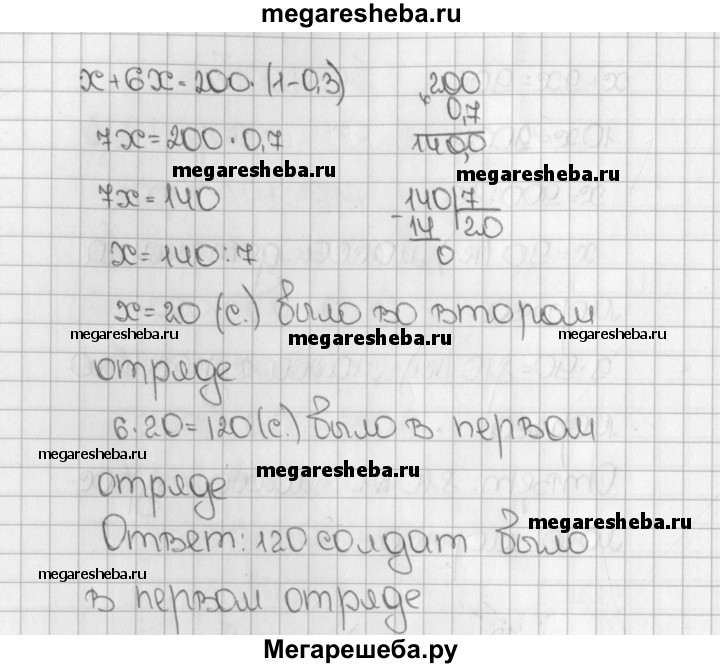 megaresheba.ru
x+6x=200·(1-0,3) 200
× 0,7
7x=200·0,7 140,0
megaresheba.ru megaresheba.ru
7x=140 140|7
-14 |20
x=140:7 0
x=20 (с.) было во втором
megaresheba.ru megaresheba.ru megaresheba.ru
отряде
6·20=120(с.) было в первом
megaresheba.ru megaresheba.ru
отряде
megaresheba.ru
Ответ: 120 солдат было
megaresheba.ru
в первом отряде
Мегарешеба.ру